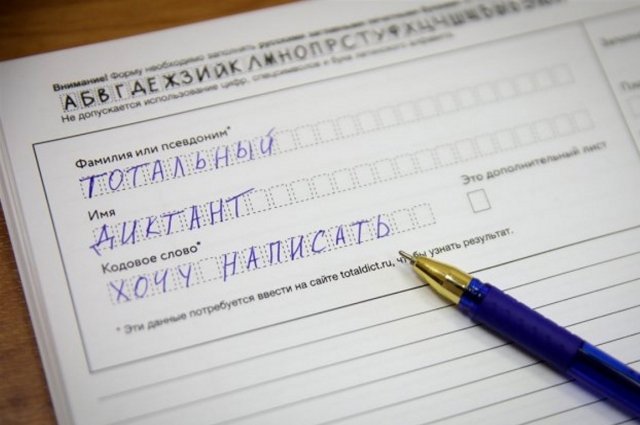 Внимание! Форму необходимо заполнить русскими заглавными печатными буквами
АБВГДЕЖЗИЙКЛМНОПРСТУФХЦЧШЩЪЫЬ
Не допускается использование цифр, спецсимволов и букв латинского алфавита.
Фамилия или псевдоним*
ТОТАЛЬНЫЙ
Имя
ДИКТАНТ
Кодовое слово*
ХОЧУ НАПИСАТЬ
Это дополнительный лист
* Эти данные потребуется ввести на сайте totaldict.ru, чтобы узнать результат.